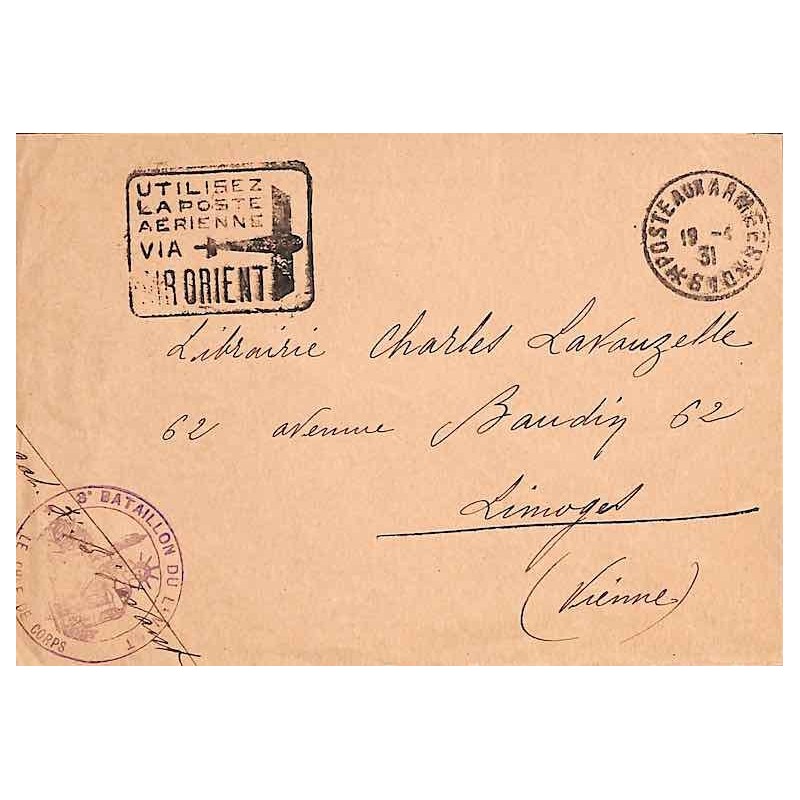 UTILISEZ
LA POSTE
AERIENNE
VIA
AIR ORIENT
POSTE AUX ARMEES
19 -4
31
Librairie Charles Lavauzelle
62 avenue Baudin 62
Limoges
(Vienne)
BATAILLON DU LEVANT
LE CHEF DE CORPS